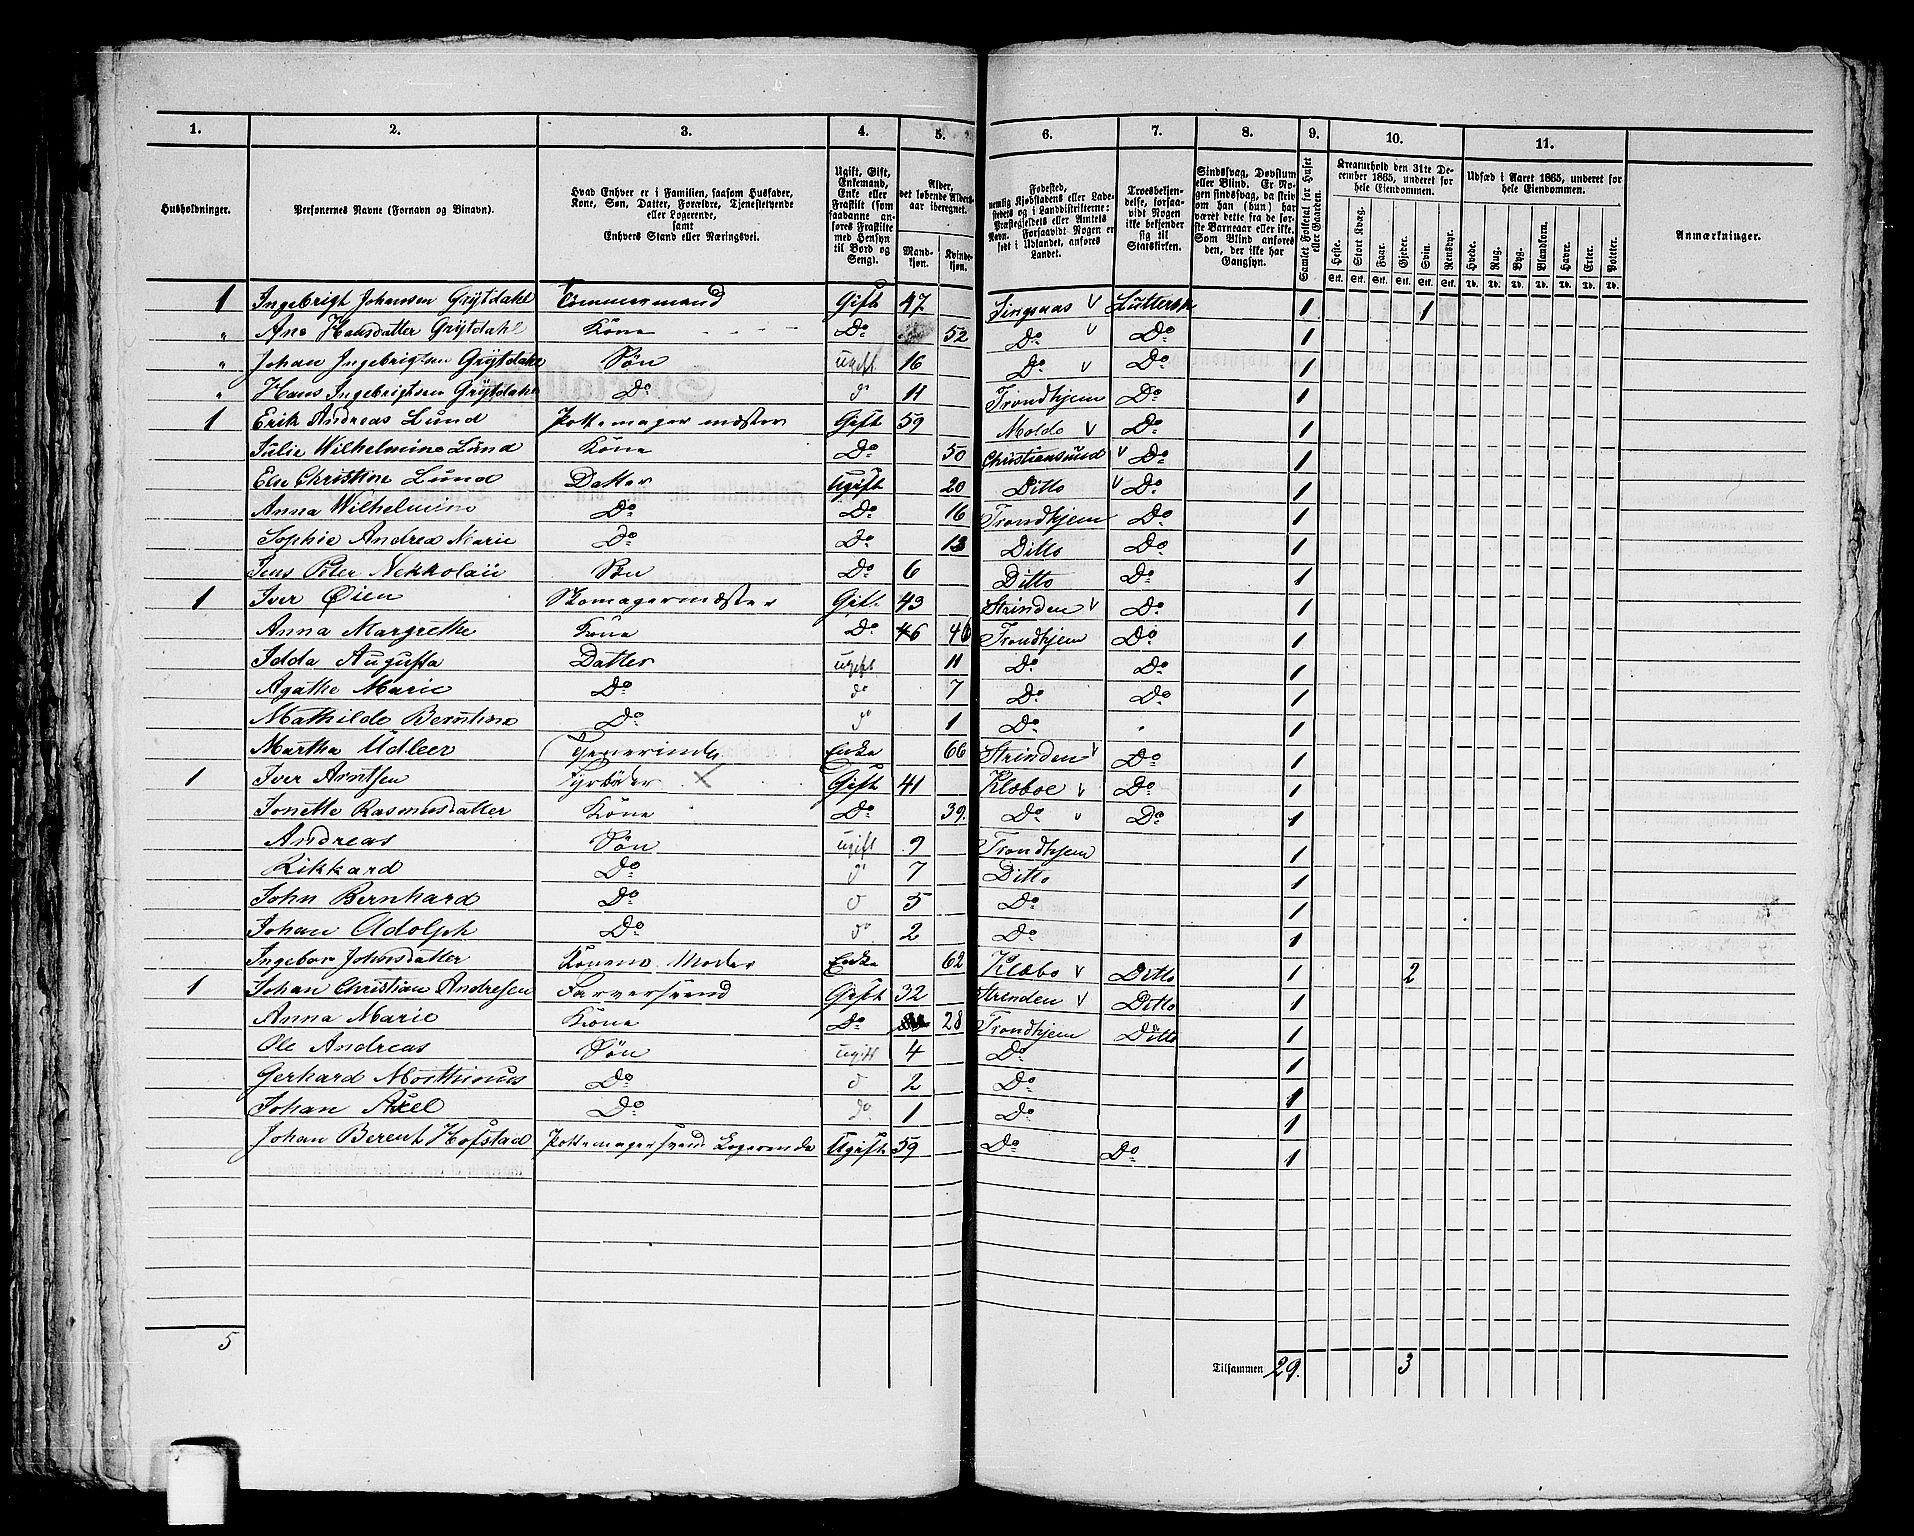 1. 2. 3. 4. 5. 6. 7. 8. 9. 10. 11.
Husholdninger.
Personernes Navne (Fornavn og Binavn).
Hvad Enhver er i Familien, saasom Husfader, Kone, Søn, Datter, Forældre, Tjenestetyende eller Logerende, samt Enhvers Stand eller Næringsvei.
Ugift, Gift, Enkemand, Enke eller Fraskilt (som saadanne anføres Fraskilte med Hensyn til Bord og Seng).
Alder, det løbende Alders-aar iberegnet.
Mandkjøn. Kvindekjøn.
Fødested, nemlig Kjøbstadens eller Ladestedets og i Landdistrikterne: Præstegjeldets eller Amtets Navn. Forsaavidt Nogen er født i Udlandet, anføres Landet.
Troesbekjendelse, forsaavidt Nogen ikke bekjender sig til Statskirken.
Sindssvag, Døvstum eller Blind. Er Nogen sindssvag, da skrives om han (hun) har været dette fra de første Barneaar eller ikke. Som Blind anføres den, der ikke har Gangsyn.
Samlet Folketal for Huset eller Gaarden.
Kreaturhold den 31te December 1865, underet for hele Eiendommen.
Heste. Stort Kvæg. Faar. Gjeder. Svin. Rensdyr.
Udsæd i Aaret 1865, underet for hele Eiendommen.
Hvede. Rug. Byg. Blandkorn. Havre. Erter. Poteter.
Anmærkninger.
1 Ingebrigt Johansen Grytdahl Tømmermand Gift 47 Singsaas v Luttersk 1 1
" Ane Hansdatter Grytdahl Kone Do 52 Do v Do 1
" Johan Ingebrigtsen Grytdahl Søn ugift 16 Do v Do 1
" Hans Ingebrigtsen Grytdahl Do do 11 Trondhjem Do 1
1 Erik Andreas Lund Pottemager mæster Gift 59 Molde v Do 1
Julie Wilhelmine Lund Kone Do 50 Christiansund v Do 1
Else Christine Lund Datter Ugift 20 Ditto v Do 1
Anna Wilhelmine Do Do 16 Trondhjem Do 1
Sophie Andrea Marie Do Do 13 Ditto Do 1
Jens Peter Nekkolaii Søn Do 6 Ditto Do 1
1 Iver Øien Skomagermæster Gift 43 Strinden v Do 1
Anna Margrethe Kone Do 46 46 Trondhjem Do 1
Idda Augusta Datter ugift 11 Do Do 1
Agathe Marie Do do 7 Do Do 1
Mathilde Berntine Do do 1 Do " 1
Martha Udleer Enke 66 Strinden v Do 1
1 Iver Arntsen Fyrbøder X Gift 41 Klæboe v Do 1
Jonetta Rasmusdatter Kone Do 39. Do v Do 1
Andreas Søn ugift 9 Trondhjem 1
Rikkard Do do 7 Ditto 1
John Bernhard Do do 5 Do 1
Johan Adolph Do do 2 Do 1
Ingebor Johnsdatter Konens Moder Enke 62 Klæbo v Ditto 1 2
1 Johan Christian Andresen Farversvend Gift 32 Strinden v Ditto 1
Anna Marie Kone Do 28 Trondhjem Ditto 1
Ole Andreas Søn ugift 4 Do 1
Gerhard Morthinus Do do 2 Do 1
Johan Axel Do do 1 Do 1
Johan Berent Hofstad Pottemagersvend Logerende Ugift 59 Do Do 1
5
Tilsammen 29. 3